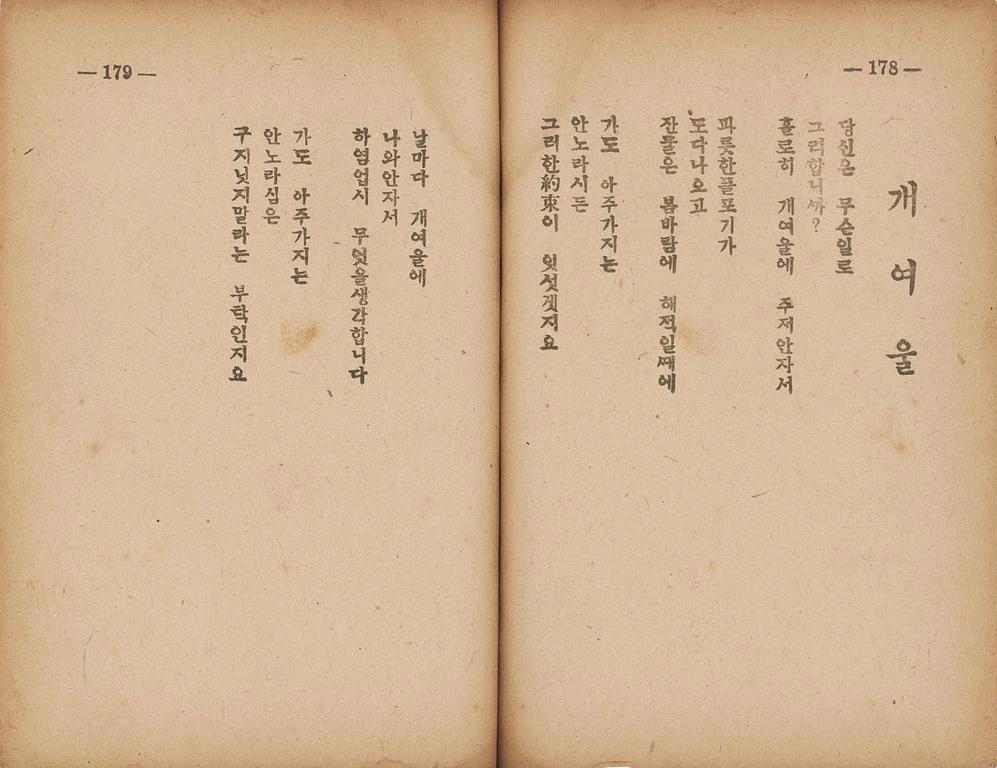 — 178 —
개여울
당신은 무슨일로
그리합니까?
홀로히 개여울에 주저안자서
파릇한풀포기가
도다나오고
잔물은 봄바람에 해적일때에
가도 아주가지는
안노라시든
그러한約束이 잇섯겟지요
— 179 —
날마다 개여울에
나와안자서
하염업시 무엇을생각합니다
가도 아주가지는
안노라심은
구지닛지말라는 부탁인지요